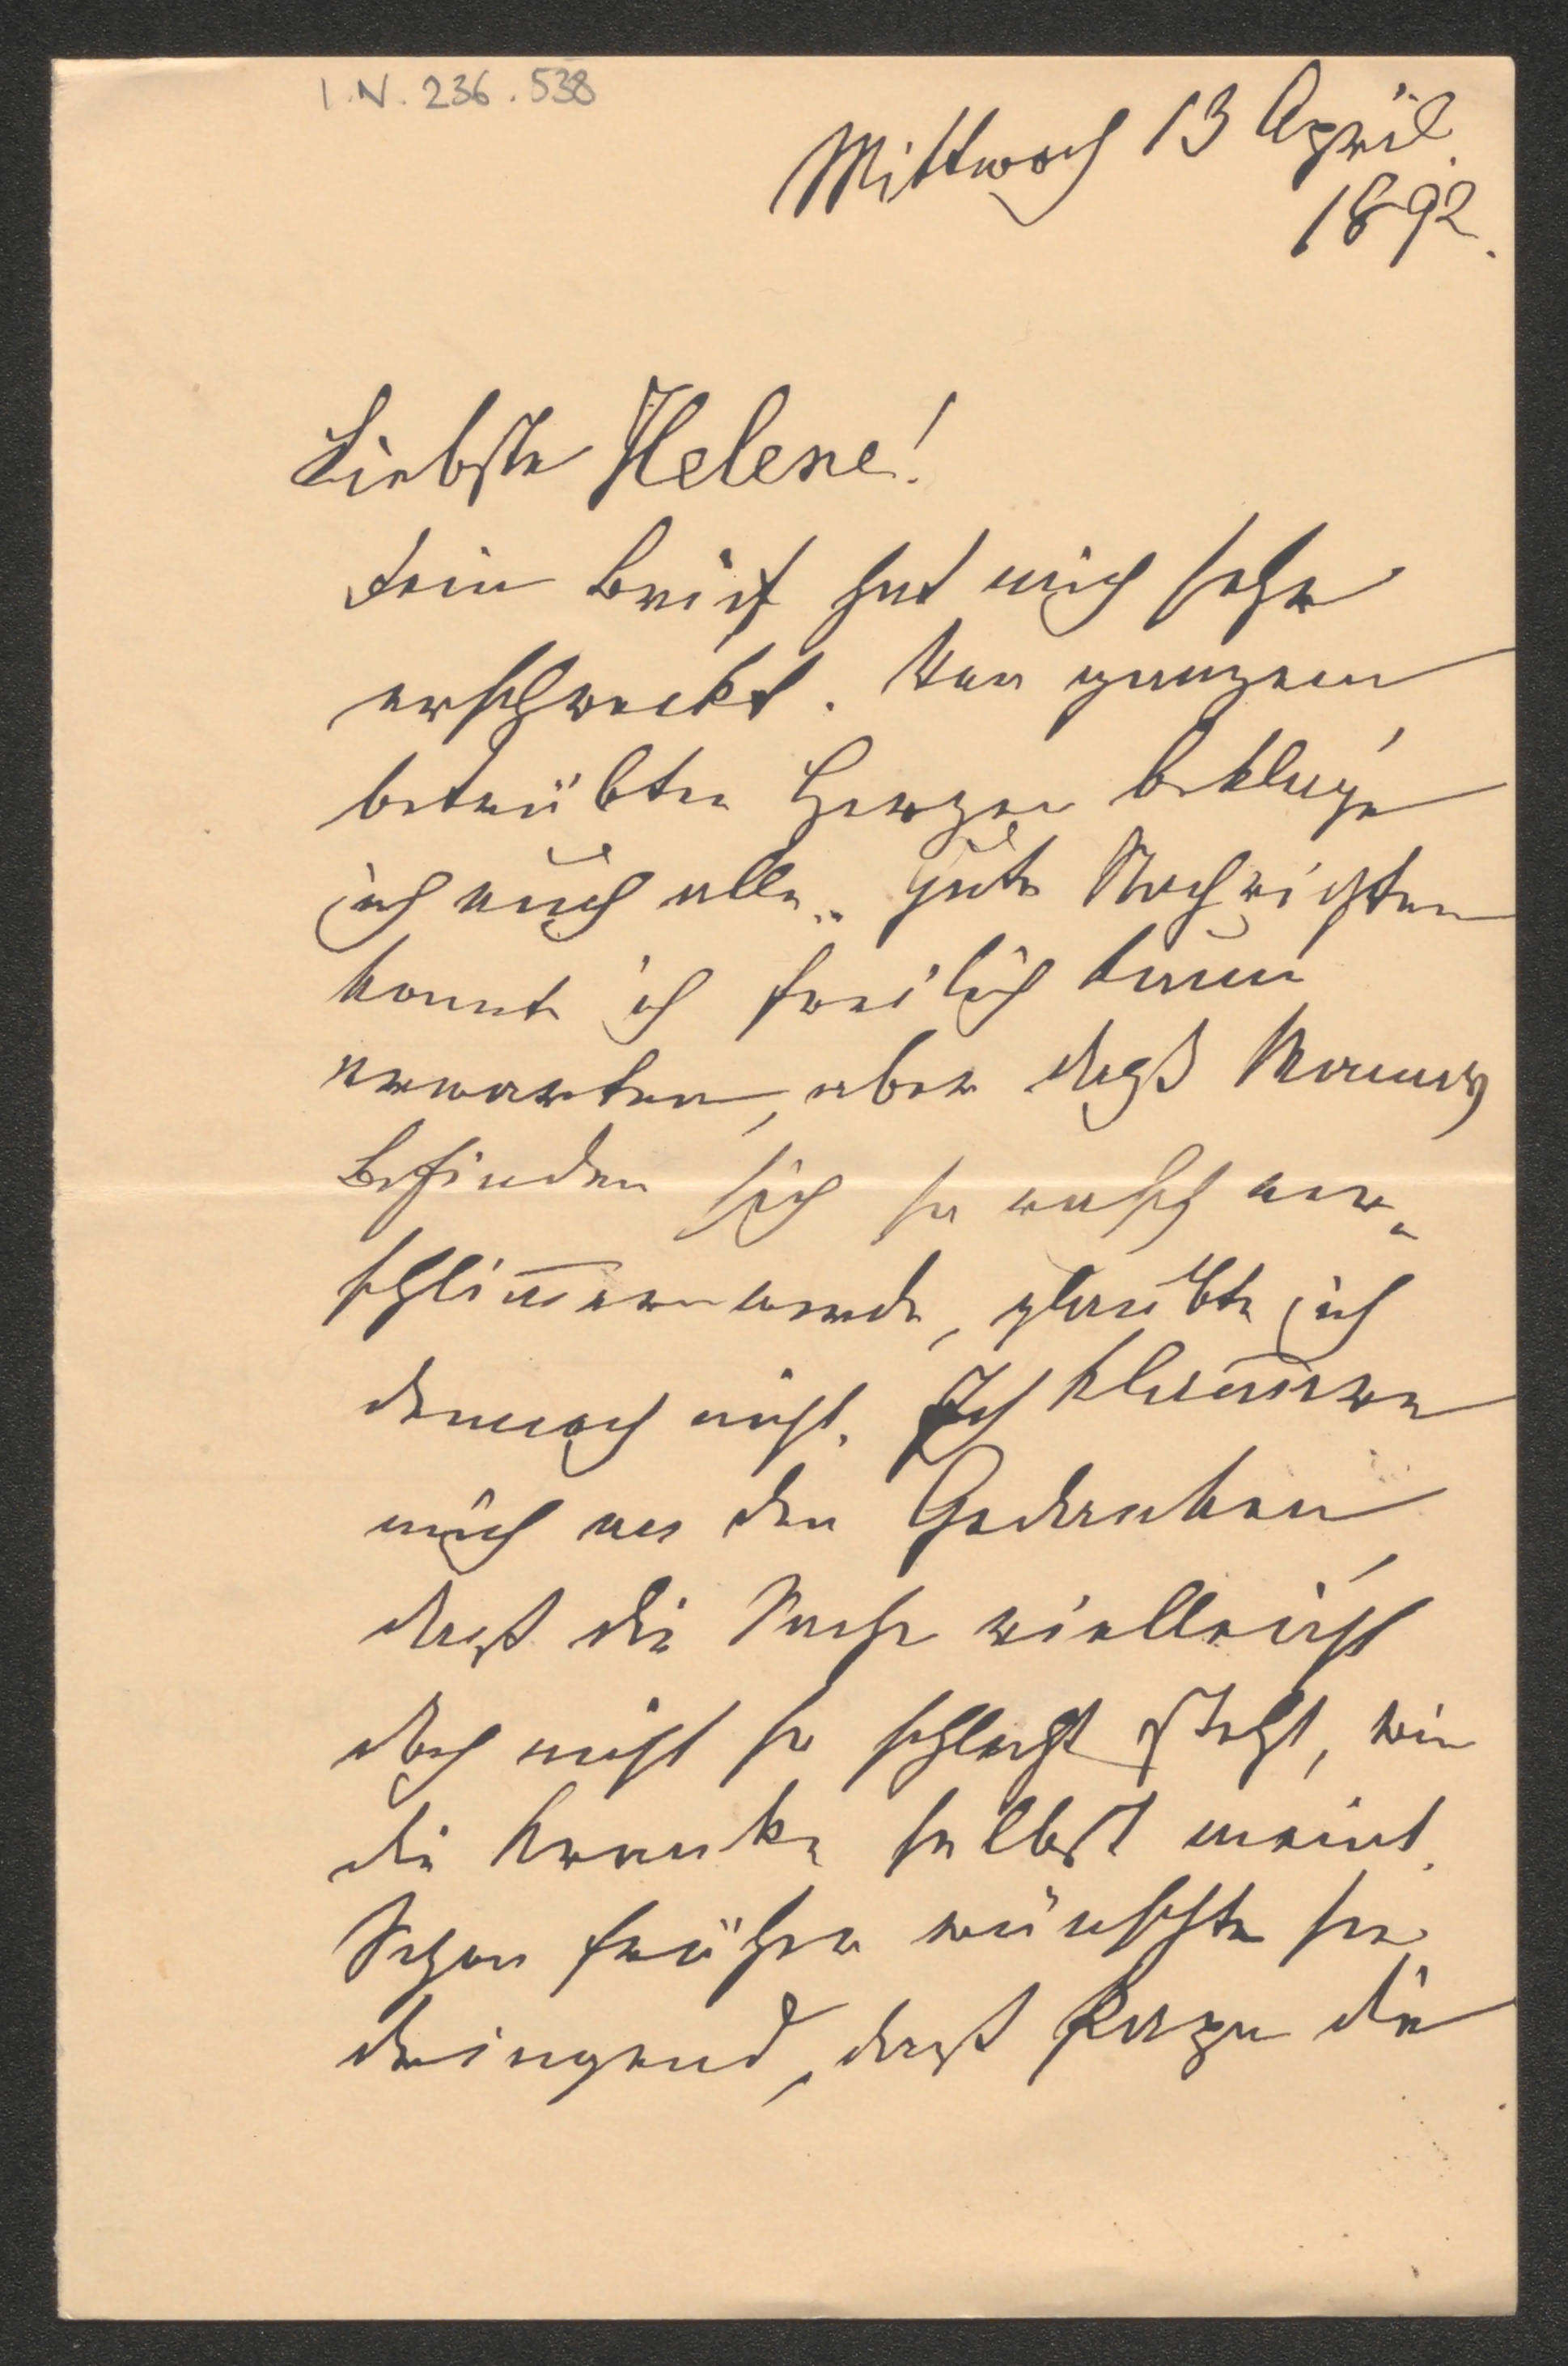 I.N. 236.538
Mittwoch 13 April.
1892.
Liebste Helene!
Dein Brief hat mich sehr
erschreckt. Von ganzem
betrübten Herzen beklage
ich euch alle. Gute Nachrichten
konnte ich freilich kaum
erwarten, aber daß Mamas
Befinden sich so rasch ver-
schlim̅ern werde, glaubte ich
dennoch nicht. Ich klam̅ere
mich an den Gedanken,
daß die Sache vielleicht
doch nicht so schlecht steht, wie
die Kranke selbst meint.
Schon früher wünschte sie
dringend, daß Papa die